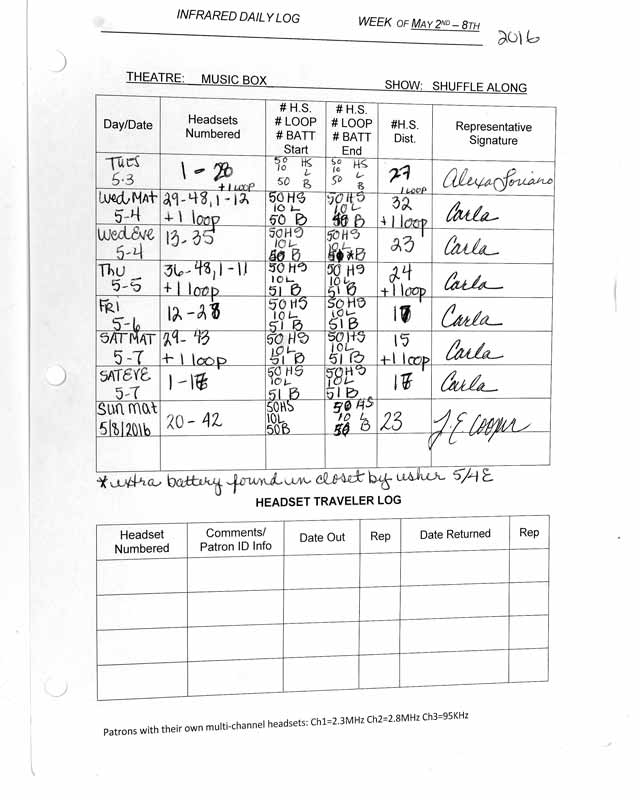 INFRARED DAILY LOG WEEK OF MAY 2ND – 8TH
2016
THEATRE: MUSIC BOX SHOW: SHUFFLE ALONG
Day/Date Headsets Numbered # H.S. # LOOP # BATT Start # H.S. # LOOP # BATT End #H.S. Dist. Representative Signature
Tues 5-3 1 - 28 +1 LOOP 50 HS 10 L 50 B 50 HS 10 L 50 B 27 1 LOOP Alexa Soriano
Wed Mat 5-4 29-48, 1-12 +1 loop 50HS 10 L 50 B 50HS 10 L 50 B 32 +1 loop Carla
Wed Eve 5-4 13-35 50HS 10L 50 B 50HS 10L *B 23 Carla
Thu 5-5 36-48, 1-11 +1 loop 50 HS 10L 51 B 50 HS 10L 51 B 24 +1 loop Carla
FRI 5-6 12-28 50HS 10L 51 B 50 HS 10L 51B 17 Carla
SAT MAT 5-7 29-43 +1 loop 50 HS 10L 51 B 50 HS 10L 51 B 15 +1 loop Carla
SAT EVE 5-7 1-17 50HS 10L 51 B 50HS 10L 51 B 17 Carla
Sun mat 5/8/2016 20-42 50HS 10L 50B 50 HS 10 L 50 B 23 J.E Cooper
*extra battery found in closet by usher 5/4E
HEADSET TRAVELER LOG
Headset Numbered Comments/ Patron ID Info Date Out Rep Date Returned Rep
Patrons with their own multi-channel headsets: Ch1=2.3MHz Ch2=2.8MHz Ch3=95KHz